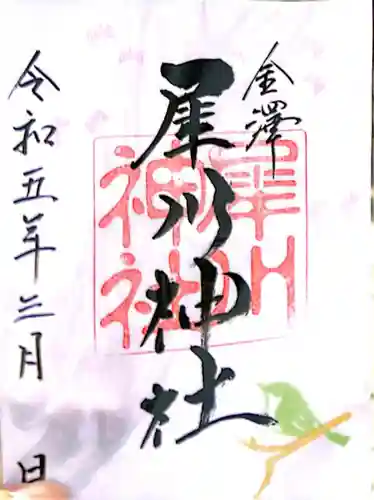 金澤
犀川神社
犀川
神社
令和五年三月
日